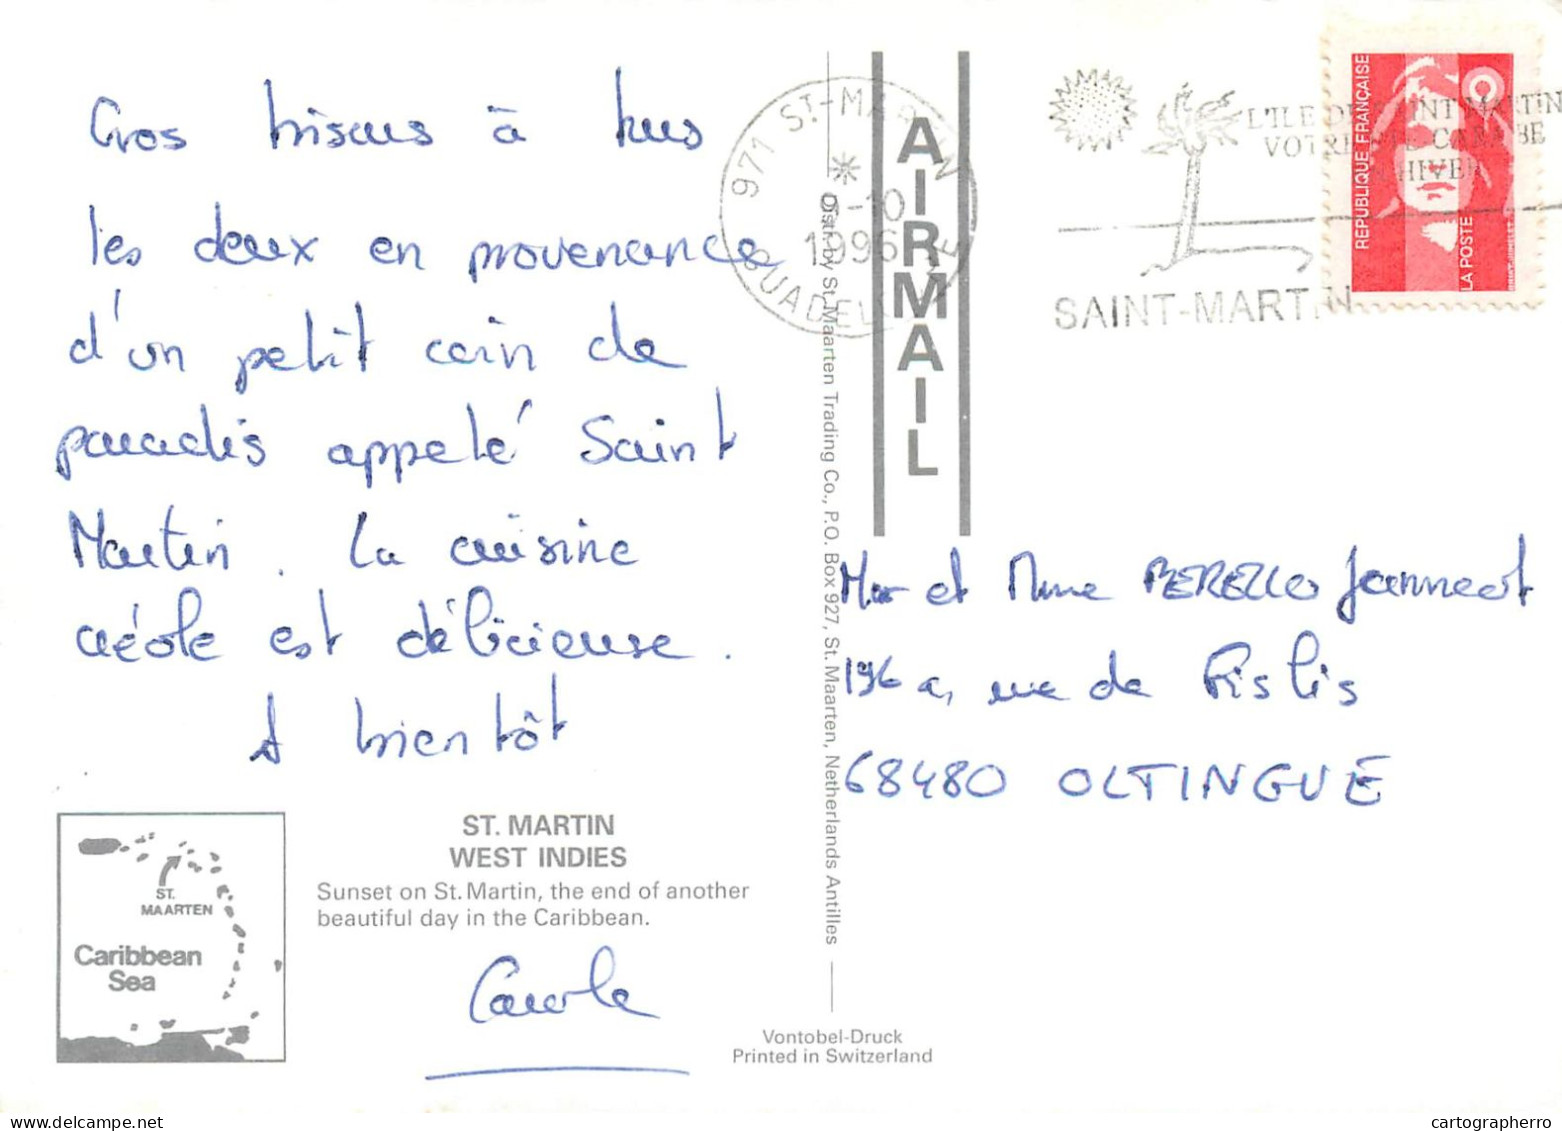 Gros bisous à tous
les deux en provenance
d'un petit coin de
paradis appelé Saint
Martin. La cuisine
créole est délicieuse.
A bientôt
ST. MARTIN
WEST INDIES
Sunset on St. Martin, the end of another
beautiful day in the Caribbean.
Carole
ST.
MAARTEN
Caribbean
Sea
Vontobel-Druck
Printed in Switzerland
Distr. by St. Maarten Trading Co., P.O. Box 927, St. Maarten, Netherlands Antilles
AIRMAIL
971 ST-MARTIN
-10
1996
GUADELOUPE
L'ILE DE SAINT MARTIN
VOTRE CARAIBE
HIVER
SAINT-MARTIN
REPUBLIQUE FRANÇAISE
LA POSTE
Mr et Mme PERELLO Jeannot
196 a, rue de Fislis
68480 OLTINGUE
cartographerro